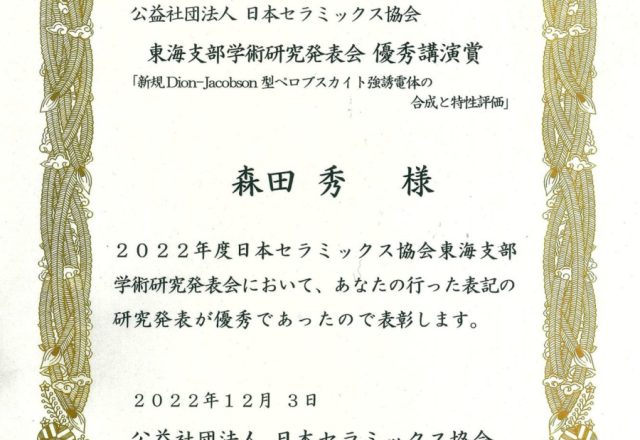 公益社団法人 日本セラミックス協会
東海支部学術研究発表会 優秀講演賞
「新規Dion-Jacobson 型ペロブスカイト強誘電体の
合成と特性評価」
森田 秀 様
２０２２年度日本セラミックス協会東海支部
学術研究発表会において、あなたの行った表記の
研究発表が優秀であったので表彰します。
２０２２年１２月 ３日
公益社団法人 日本セラミックス協会